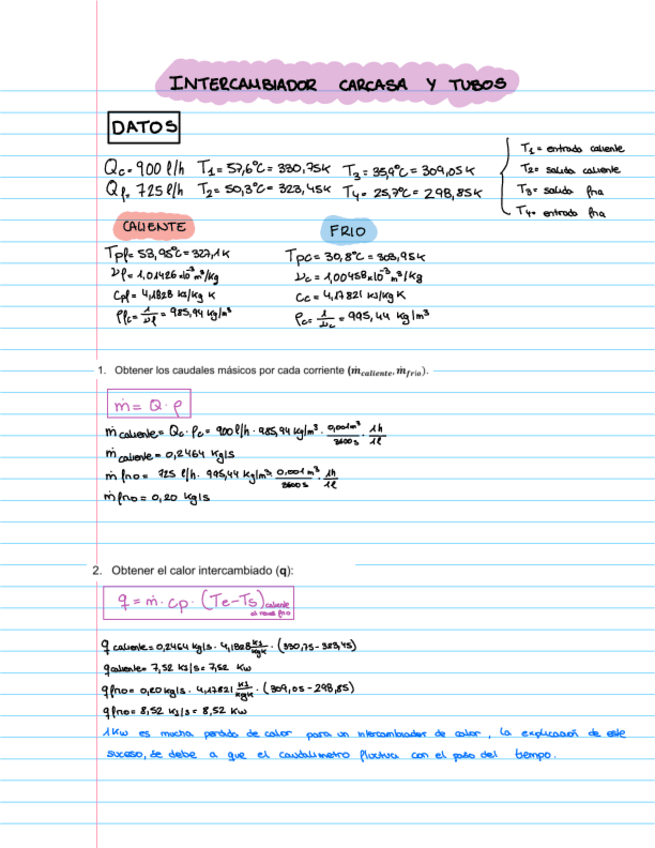 INTERCAMBIADOR CARCASA Y TUBOS
DATOS
Qc= 900 l/h T1= 57,6°C = 330,75K T3= 35,9°C = 309,05K
Qf= 725 l/h T2= 50,3°C = 323,45K T4= 25,7°C = 298,85K
T1= entrada caliente
T2= salida caliente
T3= salida fria
T4= entrada fria
CALIENTE
Tpf= 53,95°C = 327,1K
νf= 1,01426·10⁻³ m³/kg
Cpf= 4,1828 kJ/kg K
ρfc= 1/νf = 985,94 kg/m³
FRIO
Tpc= 30,8°C = 303,95K
νc= 1,00458x10⁻³ m³/kg
Cc= 4,17821 kJ/kg K
ρc= 1/νc = 995,44 kg/m³
1. Obtener los caudales másicos por cada corriente (ṁcaliente, ṁfrío).
ṁ = Q · ρ
ṁ caliente= Qc · ρc= 900 l/h · 985,94 kg/m³ · 0,001m³/3600s · 1h/1l
ṁ caliente= 0,2464 kg/s
ṁ frio= 725 l/h · 995,44 kg/m³ · 0,001m³/3600s · 1h/1l
ṁ frio= 0,20 kg/s
2. Obtener el calor intercambiado (q):
q = ṁ · cp · (Te-Ts) caliente
al reves frio
q caliente= 0,2464 kg/s · 4,1828 kJ/kgK · (330,75 - 323,45)
q caliente= 7,52 kJ/s = 7,52 kW
q frio= 0,20 kg/s · 4,17821 kJ/kgK · (309,05 - 298,85)
q frio= 8,52 kJ/s = 8,52 kW
1 kW es mucha perdida de calor para un intercambiador de calor, la explicación de este
suceso, se debe a que el caudalimetro fluctua con el paso del tiempo.